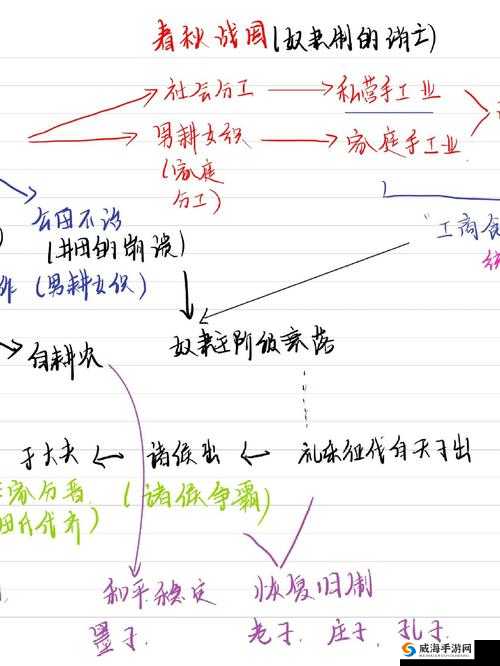 春秋战国(奴隶制的消亡)
社会分工 → 私营手工业
男耕女织 → 家庭手工业
(家庭
分工)
公田不治
(井田的崩溃)
"工商食
(男耕女织)
自耕农
奴隶主阶级衰落
于大夫 ← 诸侯出 ← 礼乐征伐自天子出
家分晋
(诸侯争霸)
田氏代齐)
和平稳定
恢复旧制
墨子.
老子、庄子、孔子.
威海手游网